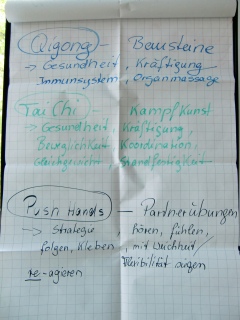 Qigong - Bausteine
→ Gesundheit, Kräftigung
Immunsystem, Organmassage
Tai Chi - Kampfkunst
→ Gesundheit, Kräftigung,
Beweglichkeit, Koordination,
Gleichgewicht, Standfestigkeit
Push Hands - Partnerübungen
→ Strategie, hören, fühlen,
folgen, kleben, mit Weichheit/
Flexibilität siegen
re-agieren